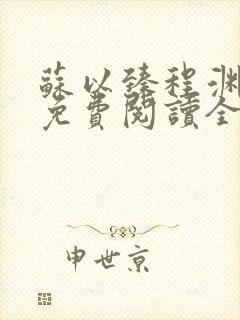 蘇以臻程渊
免費閱讀全
申世京